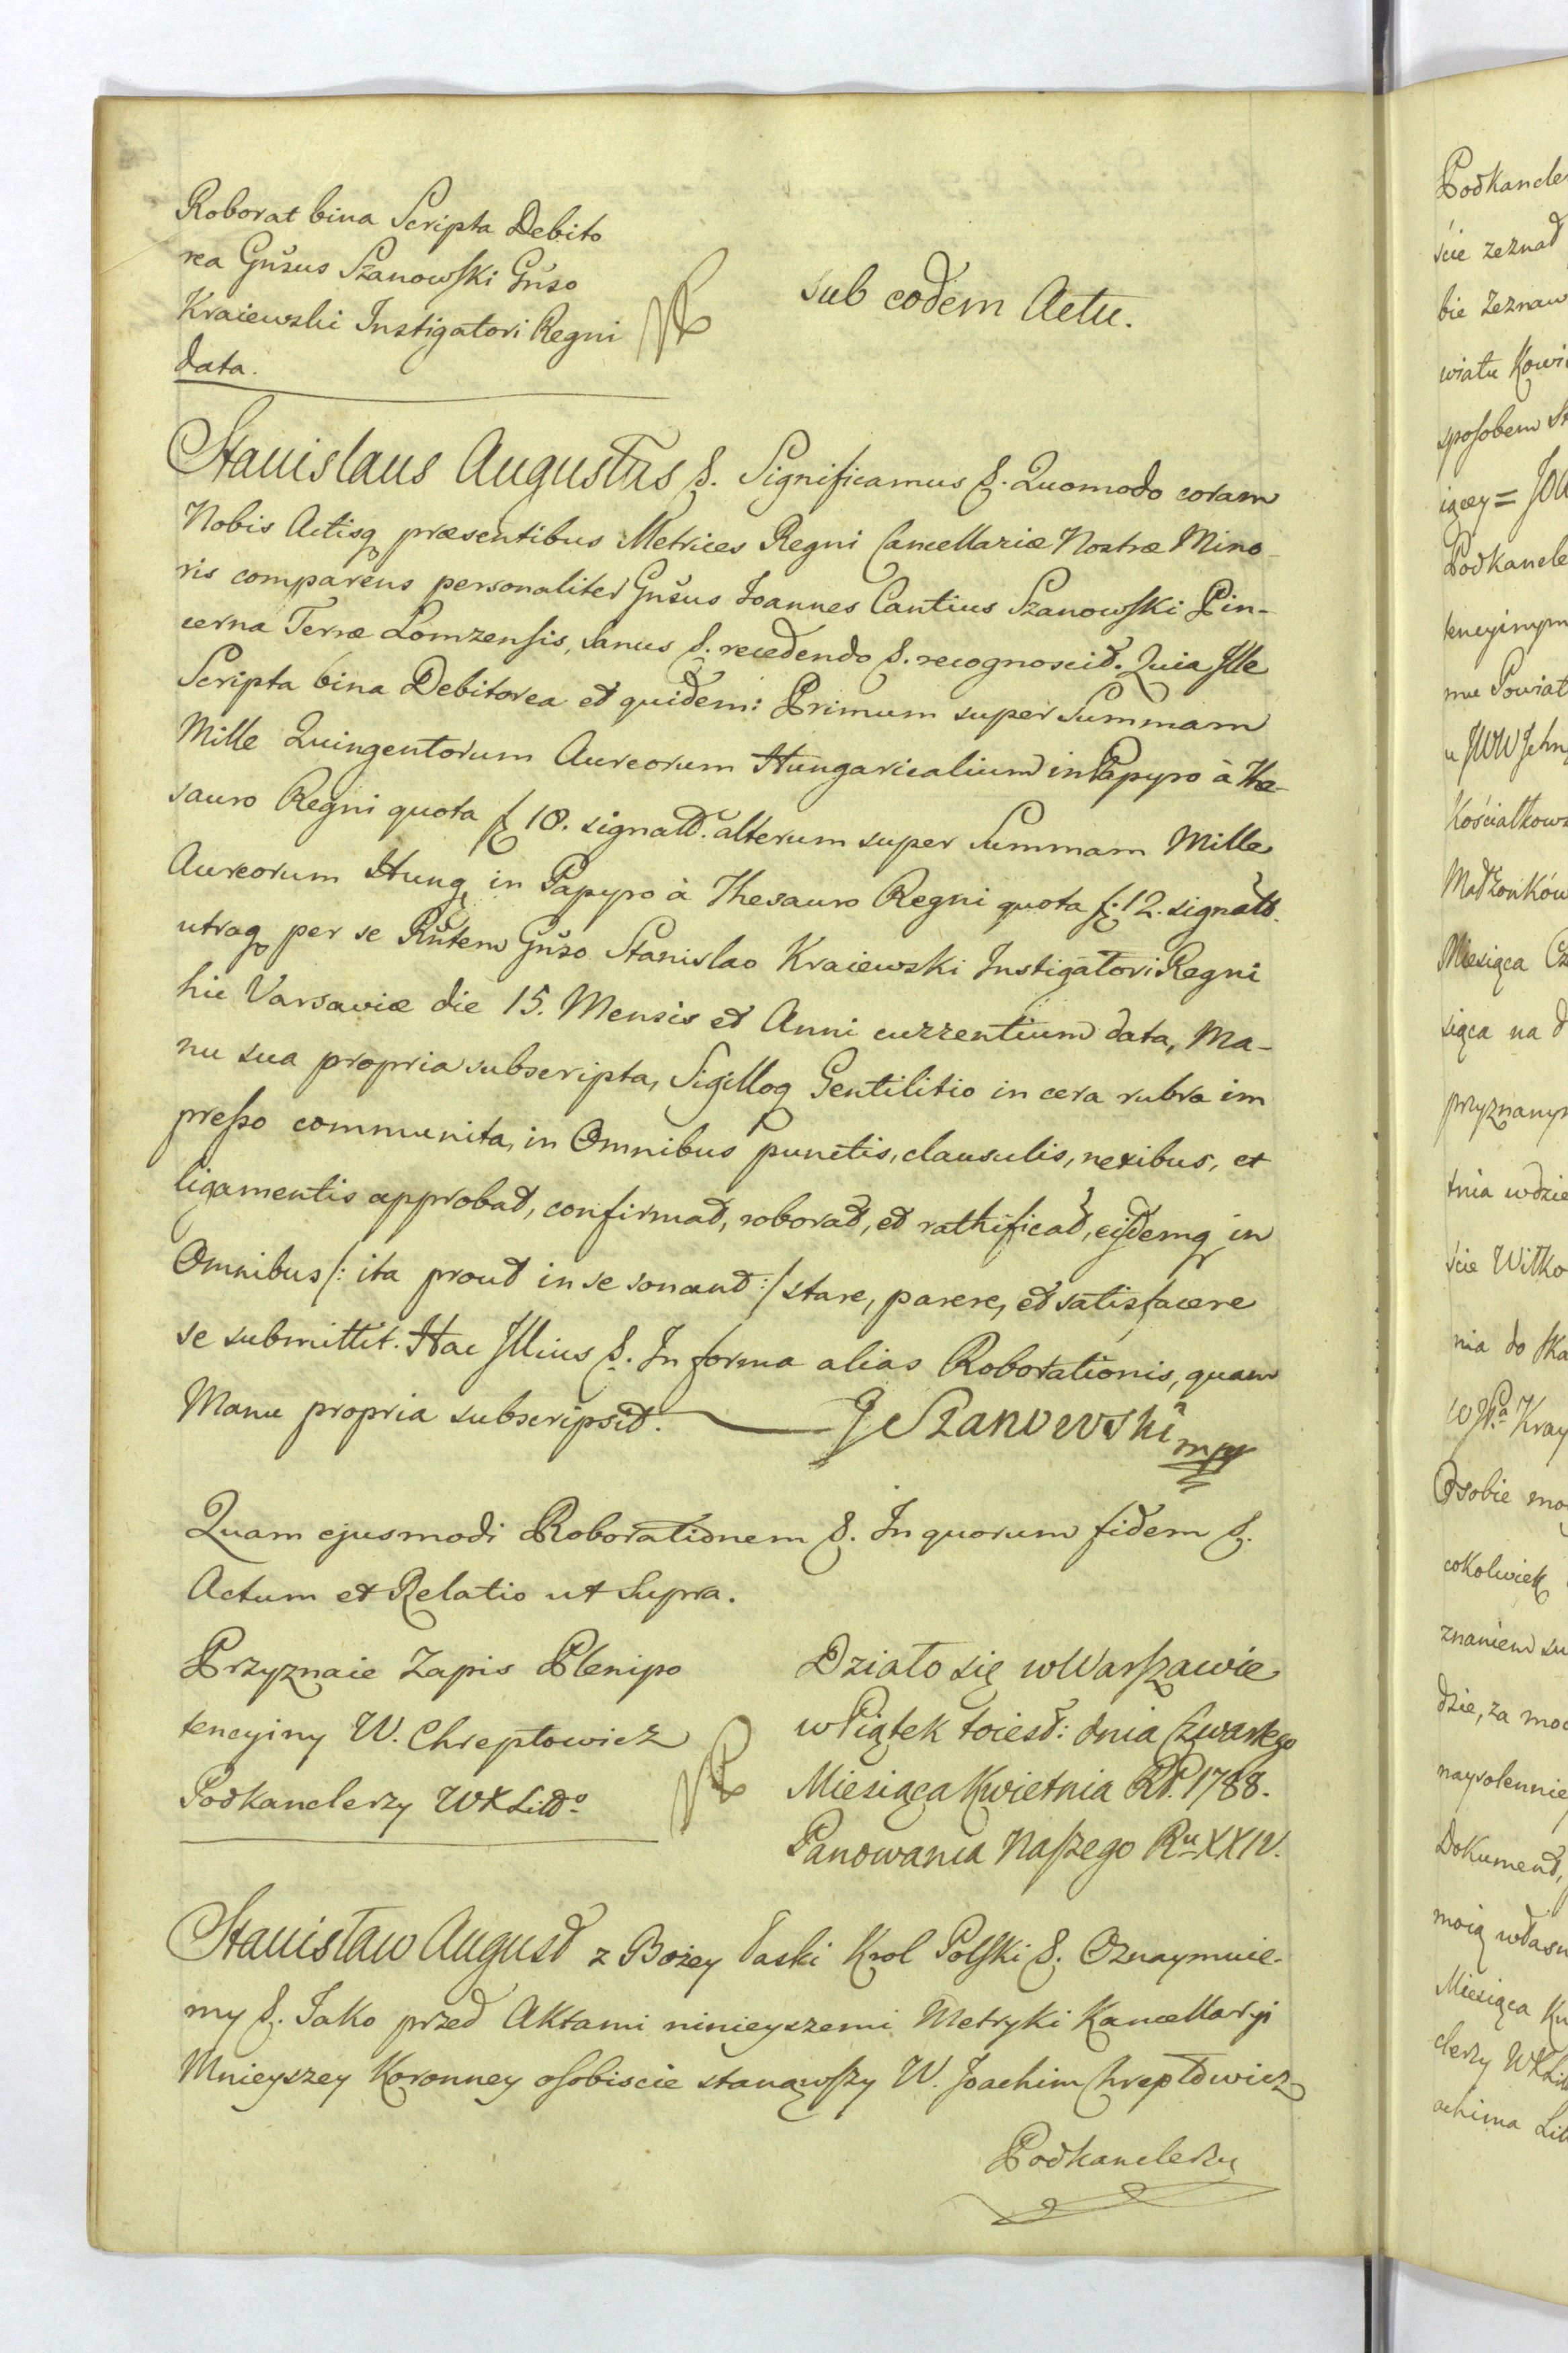 Roborat bina Scripta Debito
rea Gnsus Szanowski Gnso
Kraiewski Instigatori Regni
data.
sub eodem Actu.
Stanislaus Augustus &. Significamus &. Quomodo coram
Nobis Actisq præsentibus Metrices Regni Cancellariæ Nostræ Mino
ris comparens personaliter Gnsus Joannes Cantius Szanowski Pin-
cerna Terræ Lomzensis, sanus &. recedendo &. recognoscit. Quia Ille
Scripta bina Debitorea et quidem: Primum super Summam
Mille Quingentorum Aureorum Hungaricalium in Papyro à The-
sauro Regni quota f 18. signatt. alterum super Summam Mille
Aureorum Hung in Papyro à Thesauro Regni quota f: 12. signatt.
utraq per se Rntem Gnso Stanislao Kraiewski Instigatori Regni
hic Varsaviæ die 15. Mensis et Anni currentium data, Ma-
nu sua propria subscripta, Sigilloq Gentilitio in cera rubra im
presso communita, in Omnibus punctis, clausulis, nexibus, et
ligamentis approbat, confirmat, roborat, et rathificat, eisdemq in
Omnibus /: ita prout in se sonant :/ stare, parere, et satisfacere
se submittit. Hac Illius &. In forma alias Roborationis, quam
Manu propria subscripsit. J Szanowski mpp
Quam ejusmodi Roborationem &. In quorum fidem &.
Actum et Relatio ut supra.
Przyznaie Zapis Plenipo
tencyiny W. Chreptowicz
Podkanclerzy WXLitto
Działo się w Warszawie
w Piątek toiest: dnia Czwartego
Miesiąca Kwietnia RP. 1788.
Panowania Naszego Ru XXIV.
Stanisław August z Bożey Łaski Krol Polski &. Oznaymuie-
my &. Jako przed Aktami ninieyszemi Metryki Kancellaryi
Mnieyszey Koronney osobiscie stanąwszy W. Joachim Chreptowicz
Podkanclerzy
Podkancle
ście zeznad
bie Zeznaw
wiatu Kowi
sposobem St
iącey = JOW
Podkancle
tencyinym
mu Powiat
u JWW Jchm
Kościałkows
Małżonków
Miesiąca Cz
siąca na d
przyznanym
tnia wdzie
ście Witko
nia do Ska
WJPa Kray
Osobie mo
cokolwiek
znaniem su
dzie, za moc
naysolennie
Dokument,
moią własn
Miesiąca Kw
clerzy WXLit
achima Lit